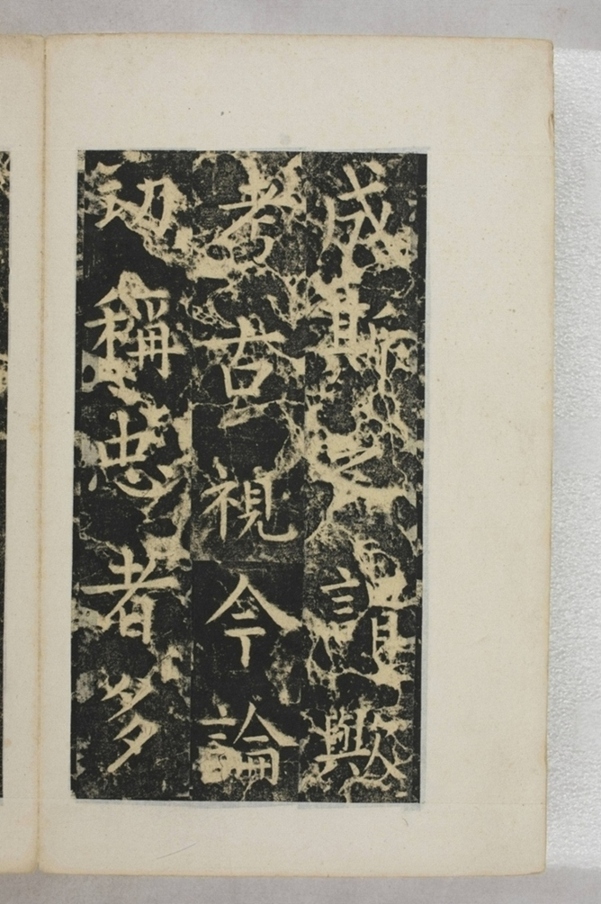 成斯之謂歟
考古視今論
功稱忠者多